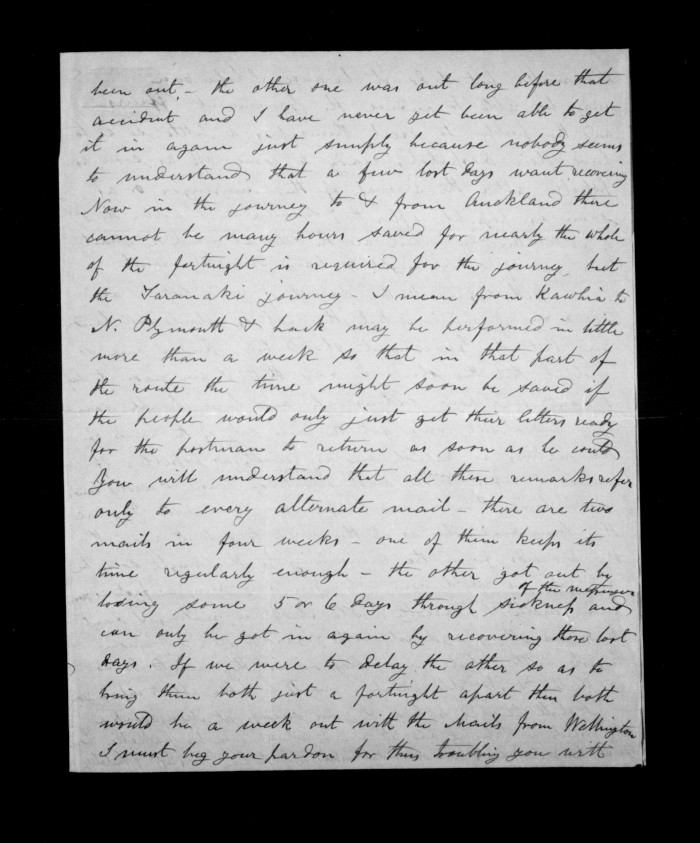 been out, - the other one was out long before that
accident and I have never yet been able to get
it in again just simply because nobody seems
to understand that a few lost days want recovering
Now in the journey to & from Auckland there
cannot be many hours saved for nearly the whole
of the fortnight is required for the journey but
the Taranaki journey - I mean from Kawhia to
N. Plymouth & back may be performed in little
more than a week so that in that part of
the route the time might soon be saved if
the people would only just get their letters ready
for the postman to return as soon as he could
You will understand that all these remarks refer
only to every alternate mail - there are two
mails in four weeks - one of them keeps its
time regularly enough - the other got out by
of the messenger
losing some 5 or 6 days through sickness and
can only be got in again by recovering those lost
days. If we were to delay the other so as to
bring them both just a fortnight apart then both
would be a week out with the Mails from Wellington
I must beg your pardon for thus troubling you with